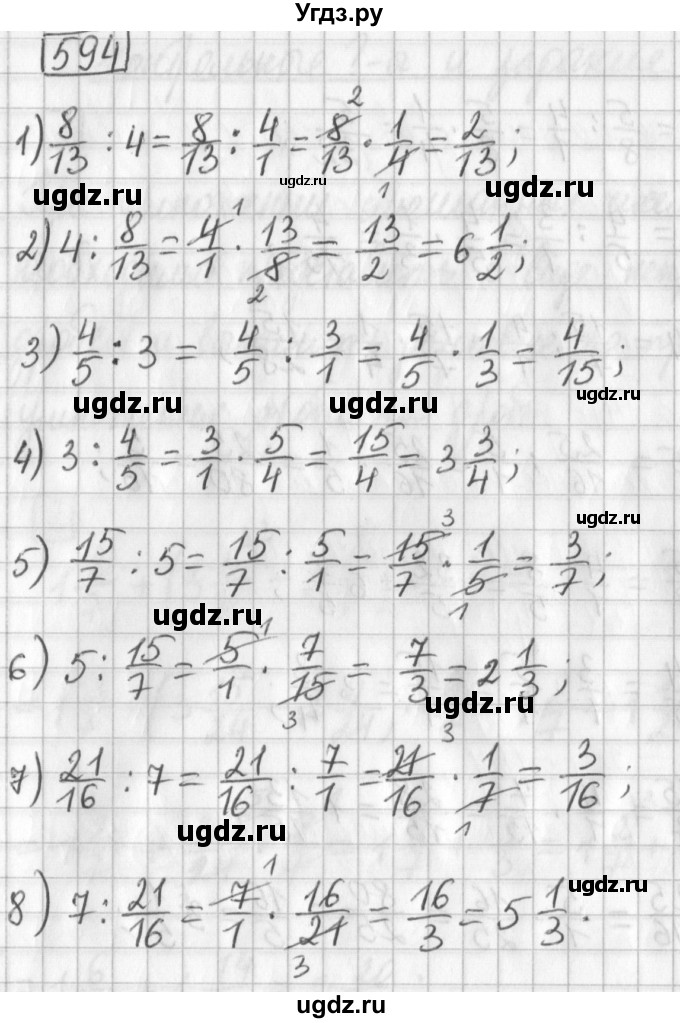 Угдз.ру
594
1) 8/13 : 4 = 8/13 : 4/1 = 8/13 · 1/4 = 2/13; 2 1
ugdz.ru ugdz.ru ugdz.ru
2) 4 : 8/13 = 4/1 · 13/8 = 13/2 = 6 1/2; 1 2
3) 4/5 : 3 = 4/5 : 3/1 = 4/5 · 1/3 = 4/15;
ugdz.ru ugdz.ru ugdz.ru
4) 3 : 4/5 = 3/1 · 5/4 = 15/4 = 3 3/4;
ugdz.ru
5) 15/7 : 5 = 15/7 : 5/1 = 15/7 · 1/5 = 3/7; 3 1
ugdz.ru
6) 5 : 15/7 = 5/1 · 7/15 = 7/3 = 2 1/3; 1 3
ugdz.ru
7) 21/16 : 7 = 21/16 : 7/1 = 21/16 · 1/7 = 3/16; 3 1
ugdz.ru
8) 7 : 21/16 = 7/1 · 16/21 = 16/3 = 5 1/3. 1 3
ugdz.ru
ugdz.ru